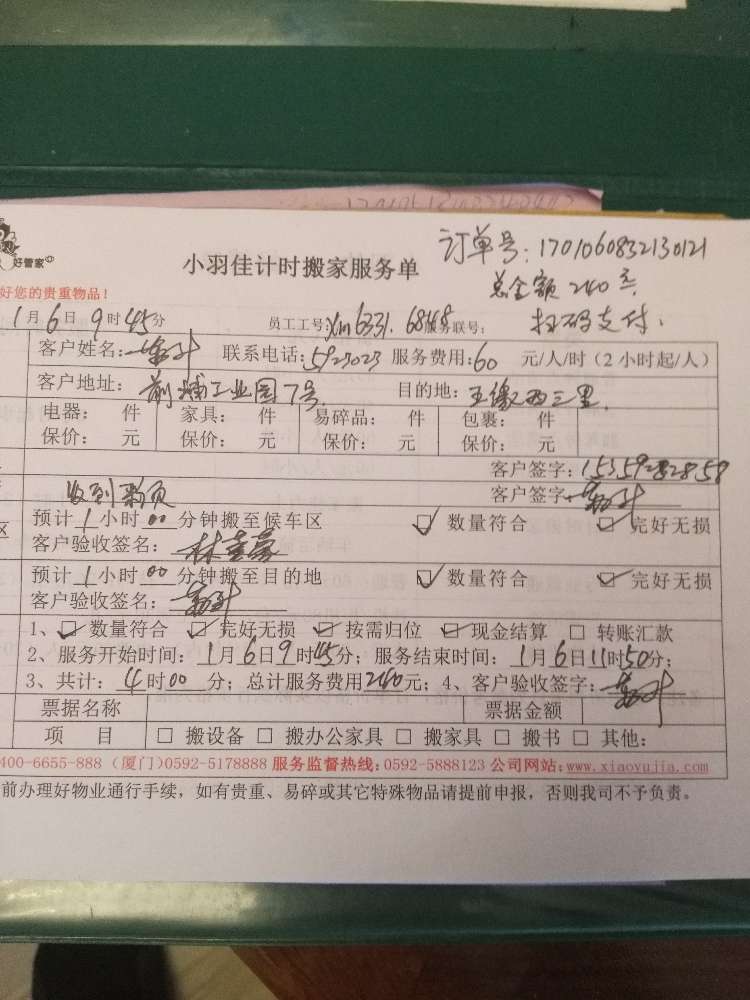 订单号：1701060832130121
好管家
小羽佳计时搬家服务单
总金额 240元
好您的贵重物品！
扫码支付.
1月6日9时45分
员工工号：Xm6331. 6848 服务联号：
客户姓名： 联系电话：5923023 服务费用：60 元/人/时（2小时起/人）
客户地址：前埔工业园7号 目的地：
电器： 件 家具： 件 易碎品： 件 包裹： 件
保价： 元 保价： 元 保价： 元 保价： 元
客户签字：15359282858
收到 客户签字：
预计1小时00分钟搬至候车区 数量符合 完好无损
客户验收签名：林
预计1小时00分钟搬至目的地 数量符合 完好无损
客户验收签名：
1、数量符合 完好无损 按需归位 现金结算 转账汇款
2、服务开始时间：1月6日9时45分；服务结束时间：1月6日11时50分；
3、共计：4时00分；总计服务费用240元；4、客户验收签字：
票据名称 票据金额
项 目 搬设备 搬办公家具 搬家具 搬书 其他：
400-6655-888（厦门）0592-5178888 服务监督热线：0592-5888123 公司网站：www.xiaoyujia.com
前办理好物业通行手续，如有贵重、易碎或其它特殊物品请提前申报，否则我司不予负责。